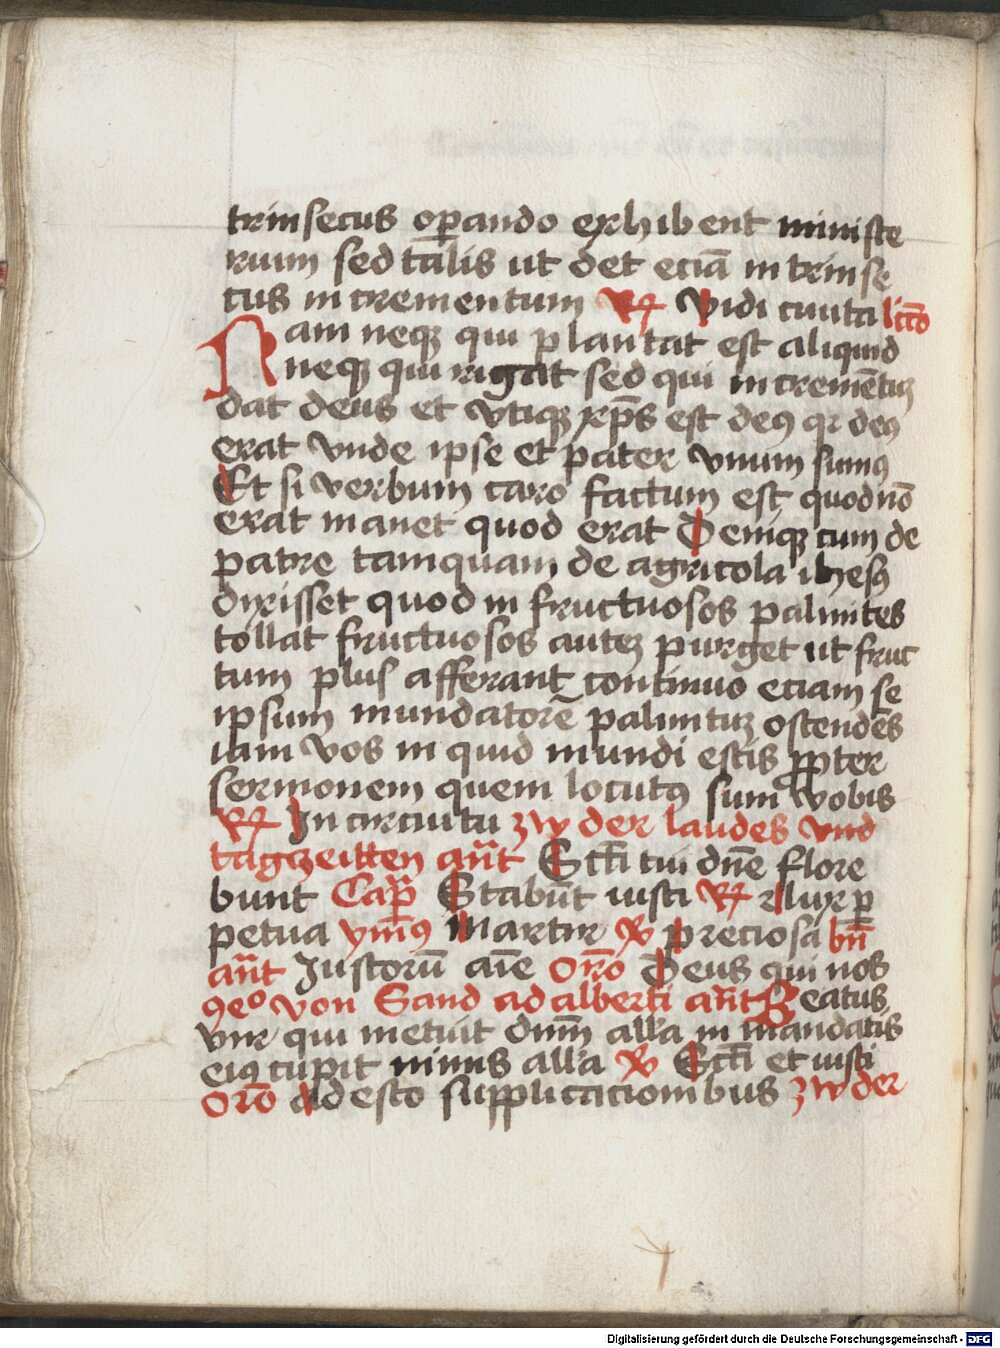 trinsecus oꝑando exhibent ministe
rium sed talis ut det eciā in trinse
cus in crementum ℟ Vidi cunta lcc̄o
Nam neqꝫ qui plantat est aliquid
neqꝫ qui rigat sed qui in cremētuꝫ
dat deus et vtiqꝫ xp̄s est deꝰ qꝛ deꝰ
erat vnde ipse et pater vnum sumꝰ
Et si verbum caro factum est quod nō
erat manet quod erat Deniqꝫ cum de
patre tamquam de agricola ihesꝰ
dixisset quod in fructuosos palmites
tollat fructuosos auteꝫ purget ut fruc
tum plus afferant continuo eciam se
ipsum mundatore palmituꝫ ostendēs
iam vos in quid mundi estis ꝓpter
sermonem quem locutꝰ sum vobis
℟ In circuitu zw der laudes vnd
tagzeitten an̄t Sc̄ti tui dn̄e flore
bunt Cap̄ Stabūt iusti ℟ Lux ꝑ
petua ym̄ꝰ Martir ℣ Preciosa bn̄
an̄t Justorū aīe Orō Deus qui nos
ꝯeo von Sand adalberti an̄t Beatus
vir qui metuit dnm̄ all'a in mandatis
eiꝰ cupit nimis all'a ℣ Sc̄ti et iusti
Orō Ad esto supplicacionibus zw der
Digitalisierung gefördert durch die Deutsche Forschungsgemeinschaft - DFG